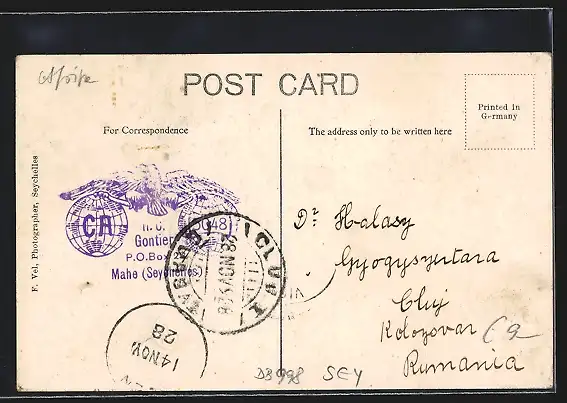 POST CARD
Printed in
Germany
For Correspondence
The address only to be written here
F. Vel, Photographer, Seychelles
CR
H. C.
Gontier
P.O.Box
Mahe (Seychelles)
CLUJ 1
28 NOV 928
14 NOV
28
Dr Halasy
Gyogyszertara
Cluj
Kolozsvar
Rumania
DB998 SEY